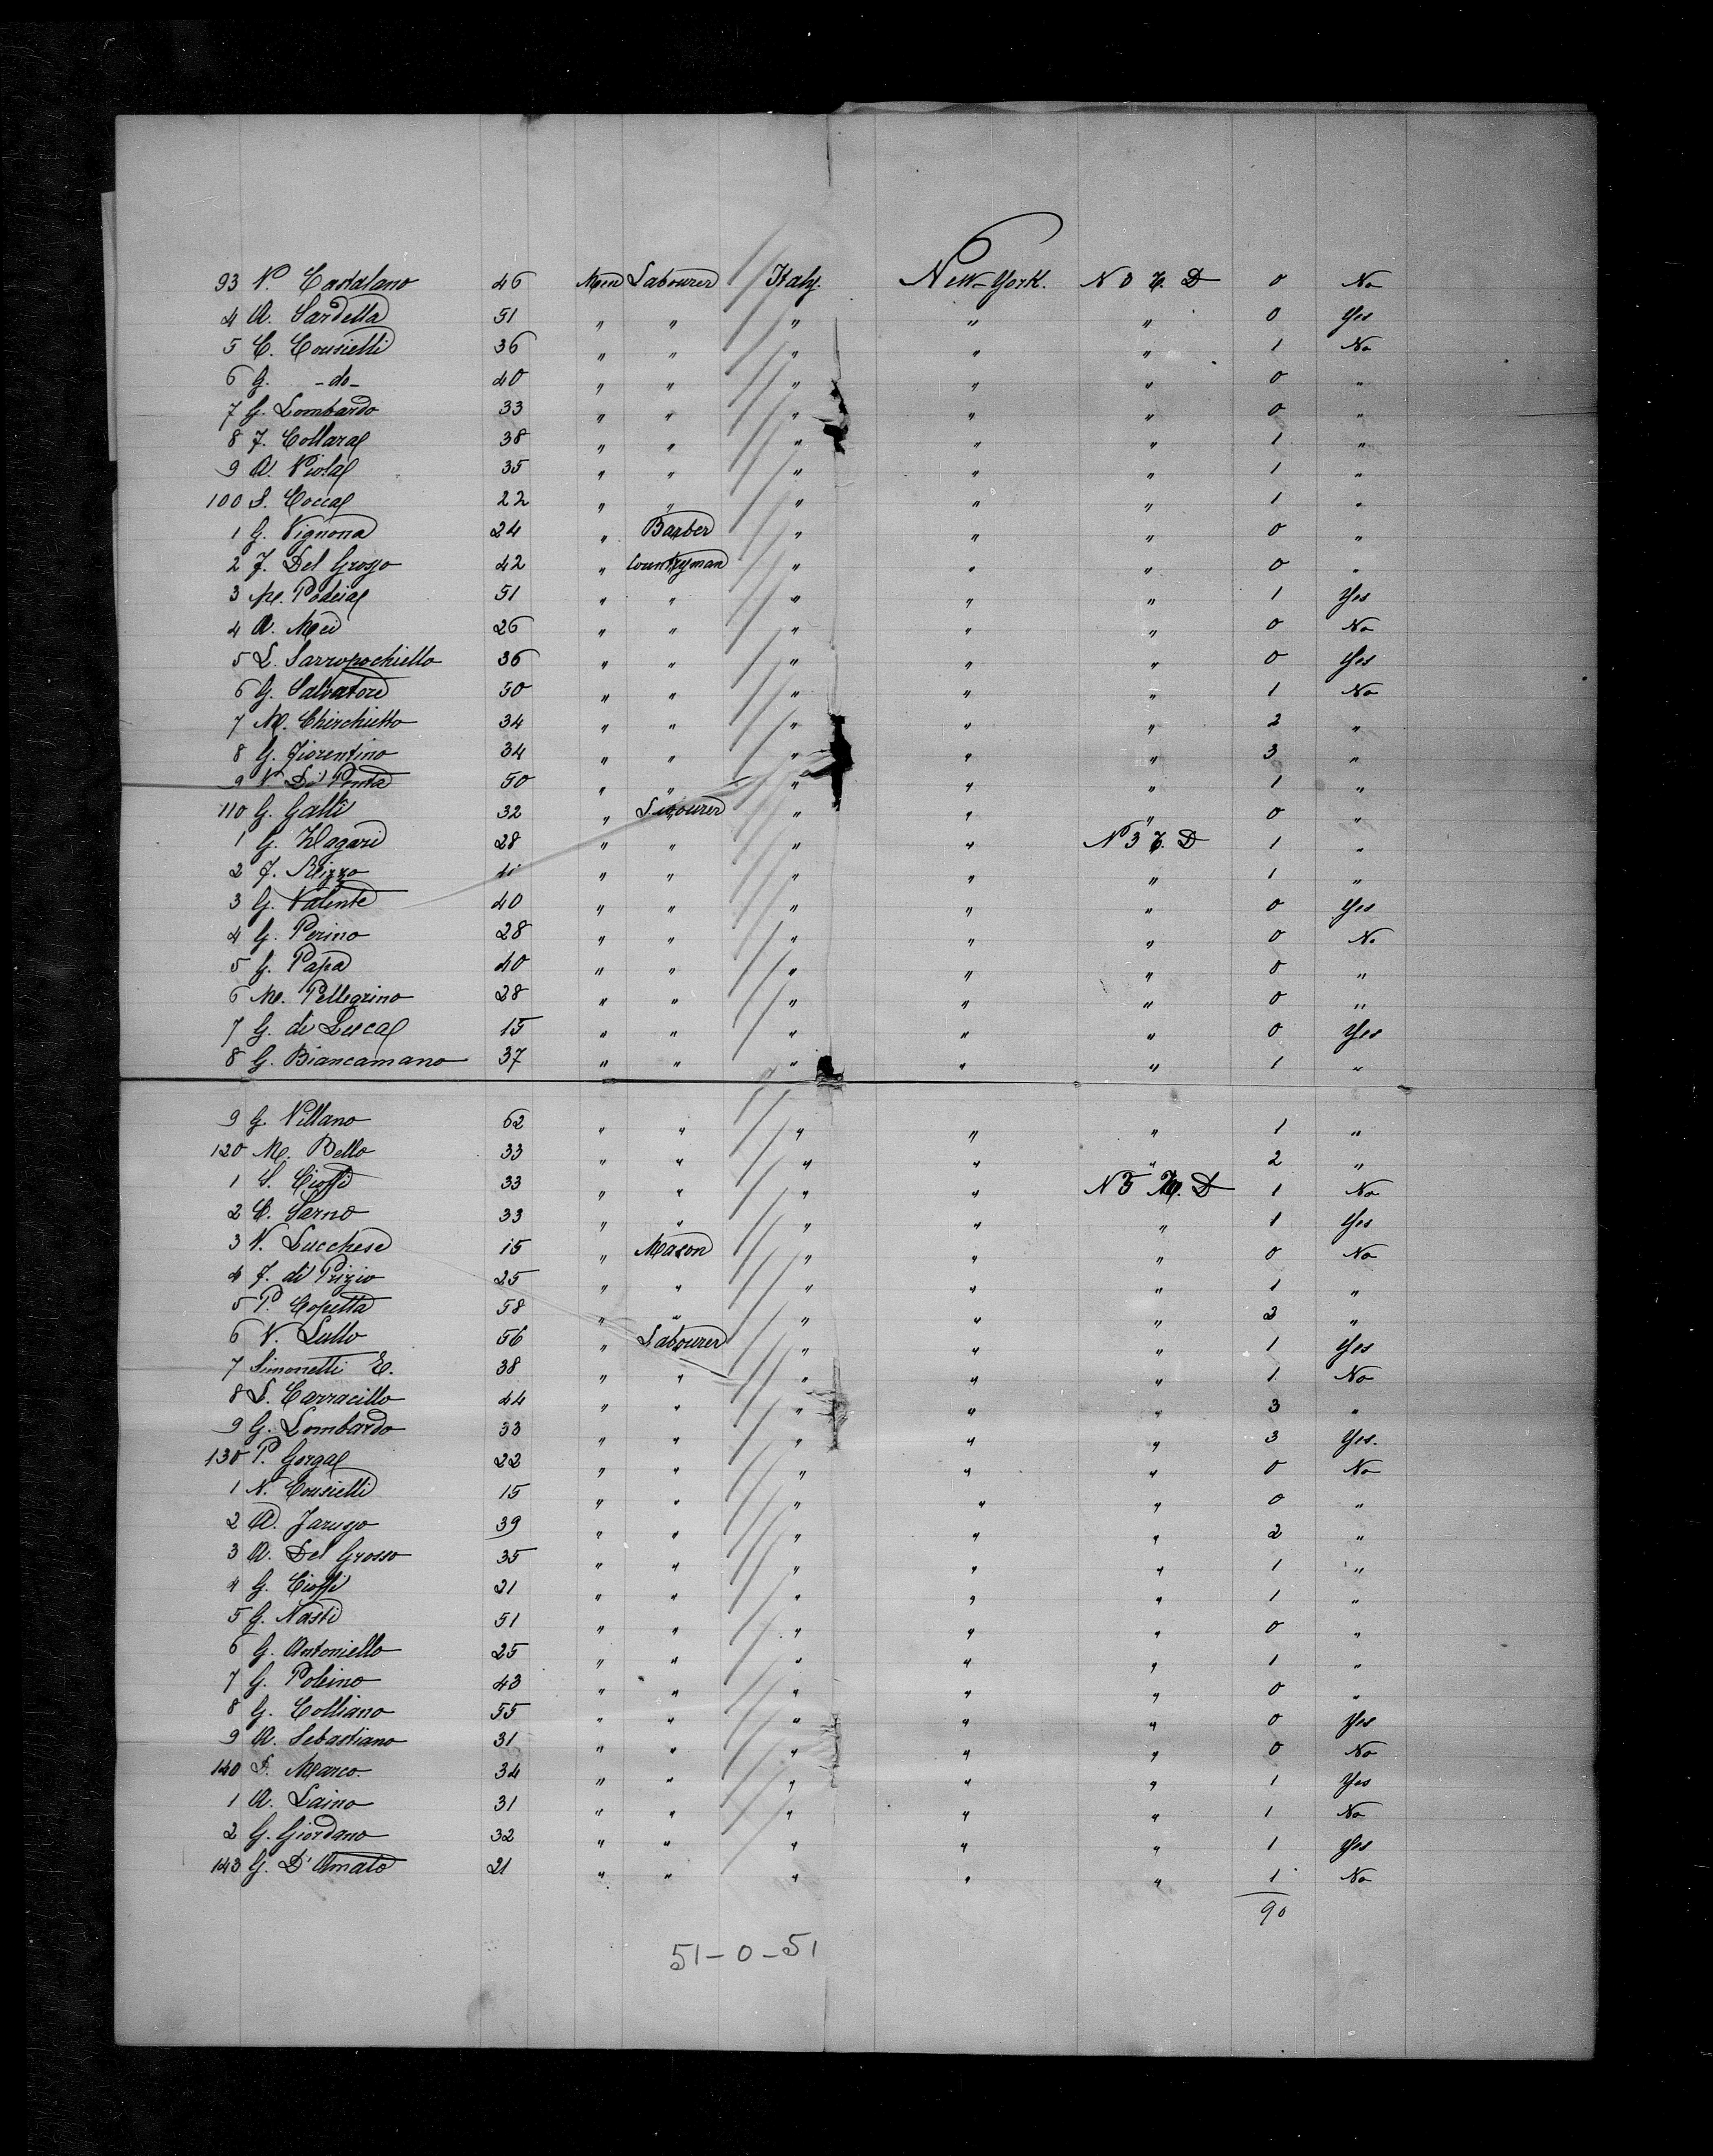 93 N. Castalano 46 Men Labourer Italy. New-York. N 0 T. D 0 No
4 A. Sardella 51 " " " " " 0 Yes
5 C. Cousielli 36 " " " " " 1 No
6 G. -do- 40 " " " " " 0 "
7 G. Lombardo 33 " " " " " 0 "
8 F. Collara 38 " " " " " 1 "
9 A. Viola 35 " " " " " 1 "
100 S. Cocca 22 " " " " " 1 "
1 G. Vignona 24 " Barber " " " 0 "
2 F. Del Grosso 42 " Countryman " " " 0 "
3 M. 51 " " " " " 1 Yes
4 A. Mei 26 " " " " " 0 No
5 L. Sarropochiello 36 " " " " " 0 Yes
6 G. Salvatore 50 " " " " " 1 No
7 M. Chirchietto 34 " " " " " 2 "
8 G. Fiorentino 34 " " " " " 3 "
9 N. Di Penta 50 " " " " " 1 "
110 G. Galli 32 " Labourer " " " 0 "
1 G. 28 " " " " N 3 T. D 1 "
2 F. Rizzo " " " " " 1 "
3 G. Valente 40 " " " " " 0 Yes
4 G. Perino 28 " " " " " 0 No
5 G. Papa 40 " " " " " 0 "
6 M. Pellegrino 28 " " " " " 0 "
7 G. di Luca 15 " " " " " 0 Yes
8 G. Biancamano 37 " " " " " 1 "
9 G. Villano 62 " " " " " 1 "
120 M. Bello 33 " " " " " 2 "
1 S. Cioffi 33 " " " " N 5 D 1 No
2 C. Sarno 33 " " " " " 1 Yes
3 V. Lucchese 15 " Mason " " " 0 No
4 F. di Prizio 25 " " " " " 1 "
5 P. Copetta 58 " " " " " 3 "
6 V. Lullo 56 " Labourer " " " 1 Yes
7 Simonetti E. 38 " " " " " 1 No
8 L. Carracillo 44 " " " " " 3 "
9 G. Lombardo 33 " " " " " 3 Yes.
130 P. Gorga 22 " " " " " 0 No
1 N. Cousielli 15 " " " " " 0 "
2 A. Jarusso 39 " " " " " 2 "
3 A. Del Grosso 35 " " " " " 1 "
4 G. Cioffi 21 " " " " " 1 "
5 G. Nasti 51 " " " " " 0 "
6 G. Antoniello 25 " " " " " 1 "
7 G. Polcino 43 " " " " " 0 "
8 G. Colliano 55 " " " " " 0 Yes
9 A. Sebastiano 31 " " " " " 0 No
140 D. Marco. 34 " " " " " 1 Yes
1 A. Laino 31 " " " " " 1 No
2 G. Giordano 32 " " " " " 1 Yes
143 G. D'Amato 21 " " " " " 1 No
90
51-0-51